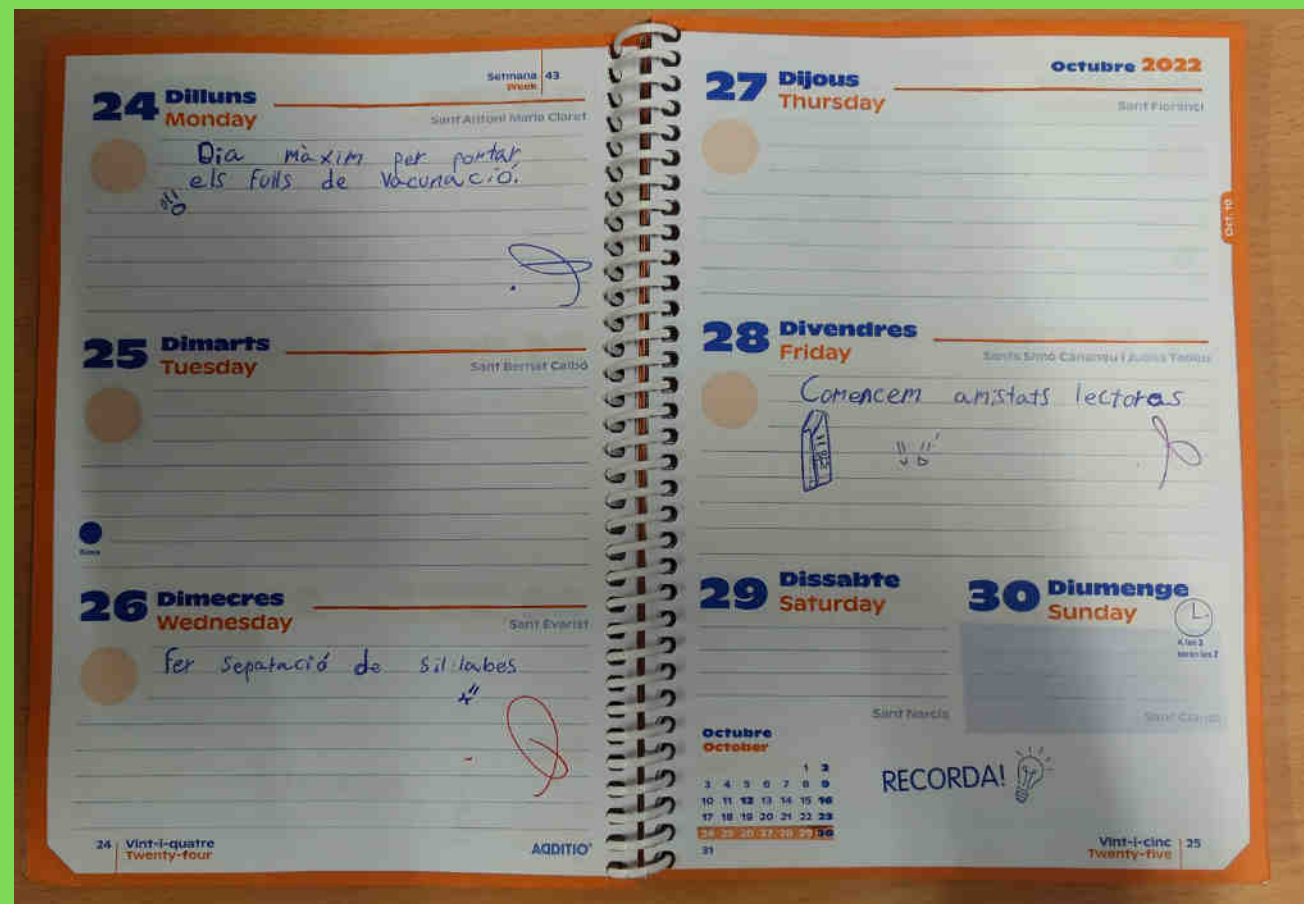 Setmana 43
Week
24 Dilluns
Monday
Sant Antoni Maria Claret
Dia màxim per portar
els fulls de vacunació.
25 Dimarts
Tuesday
Sant Bernat Calbó
26 Dimecres
Wednesday
Sant Evarist
Fer separació de síl·labes
24 Vint-i-quatre
Twenty-four
ADDITIO
Octubre 2022
27 Dijous
Thursday
Sant Florenci
Oct. 10
28 Divendres
Friday
Sants Simó Cananeu i Judes Tadeu
Comencem amistats lectores
29 Dissabte
Saturday
Sant Narcís
30 Diumenge
Sunday
A les 3
seran les 2
Octubre
October
1 2
3 4 5 6 7 8 9
10 11 12 13 14 15 16
17 18 19 20 21 22 23
24 25 26 27 28 29 30
31
RECORDA!
Vint-i-cinc 25
Twenty-five